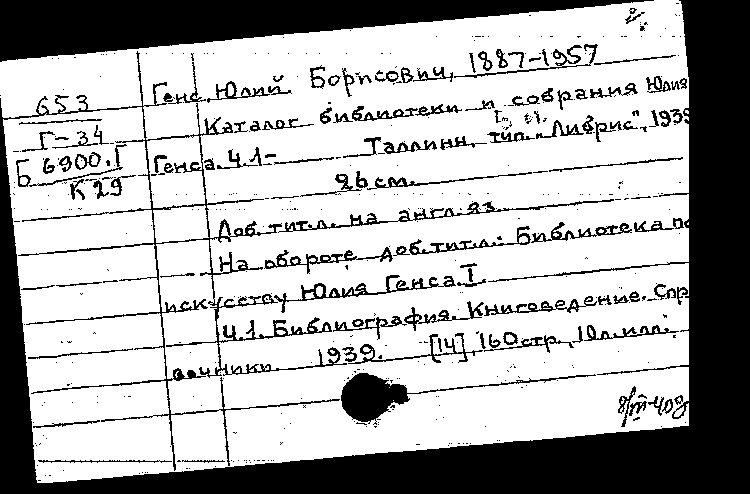 653
Г-34
Б 6900.Г
К 29
Генс, Юлий Борисович, 1887-1957
Каталог библиотеки и собрания Юлия
Генса. Ч.1- Таллинн, тип. "Либрис", 1939
26 см.
Доб. тит.л. на англ. яз.
На обороте доб. тит.л.: Библиотека по
искусству Юлия Генса. I.
Ч.1. Библиография. Книговедение. Спр
вочники. 1939. [14], 160 стр., 10 л. илл.
8/III-40г